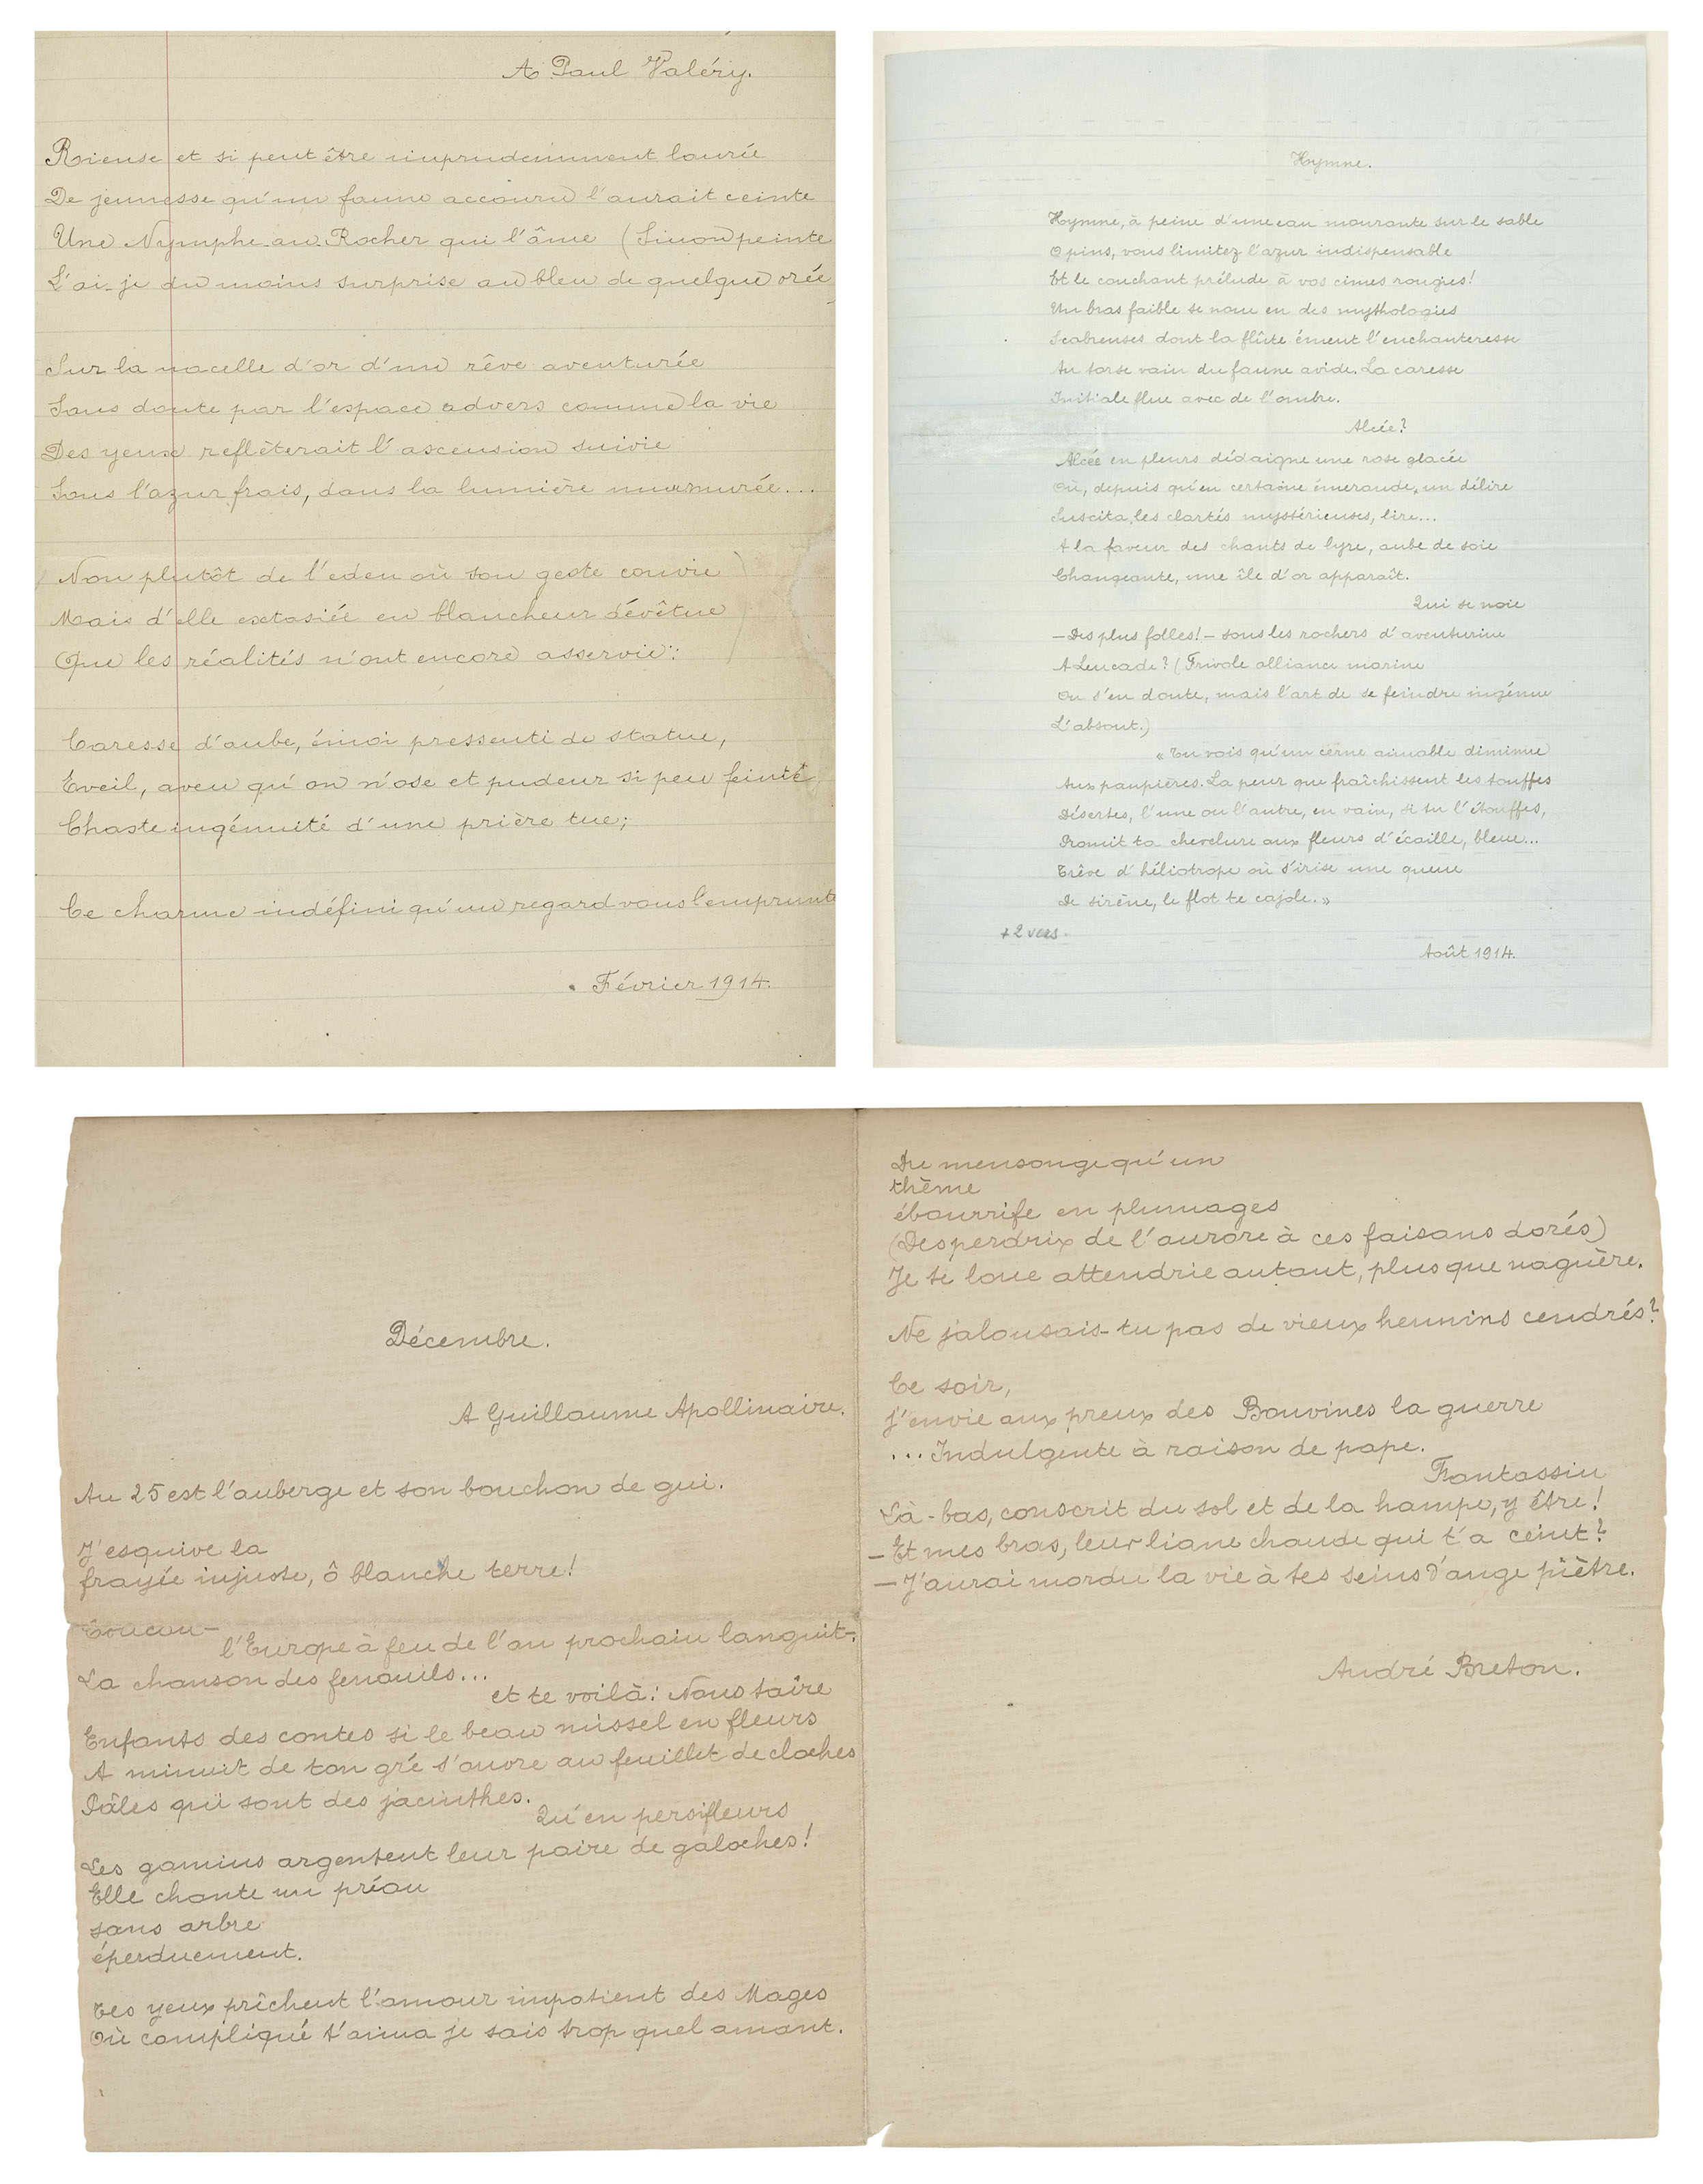 A Paul Valéry.
Rieuse et si peut être imprudemment laurée
De jeunesse qu'un faune accouru l'aurait ceinte
Une Nymphe au Rocher qui l'âme (Sinon peinte
L'ai-je du moins surprise au bleu de quelque orée
Sur la nacelle d'or d'un rêve aventurée
Sans doute par l'espace advers comme la vie
Des yeux reflèterait l'ascension suivie
Sous l'azur frais, dans la lumière murmurée....
Non plutôt de l'eden où son geste convie
Mais d'elle extasiée en blancheur dévêtue
Que les réalités n'ont encore asservie:
Caresse d'aube, émoi pressenti de statue,
Eveil, aveu qu'on n'ose et pudeur si peu feinte
Chaste ingénuité d'une prière tue;
Ce charme indéfini qu'un regard vous l'emprunte
Février 1914.
Hymne.
Hymne, à peine d'une eau mourante sur le sable
O pins, vous limitez l'azur indispensable
Et le couchant prélude à vos cimes rougies!
Un bras faible se noue en des mythologies
Scabreuses dont la flûte émeut l'enchanteresse
Au torse vain du faune avide. La caresse
Initiale flue avec de l'ombre.
Alcée?
Alcée en pleurs dédaigne une rose glacée
Où, depuis qu'en certaine émeraude, un délire
Suscita, les clartés mystérieuses, lire...
A la faveur des chants de lyre, aube de soie
Changeante, une île d'or apparaît.
Qui se noie
—Des plus folles!— sous les rochers d'aventurine
A Leucade? (Frivole alliance marine
On s'en doute, mais l'art de se feindre ingénue
L'absout.)
« Tu vois qu'un cerne aimable diminue
Aux paupières. La peur que fraîchissent les touffes
Désertes, l'une ou l'autre, en vain, si tu l'étouffes,
Promit ta chevelure aux fleurs d'écaille, bleue...
Trêve d'héliotrope où s'irise une queue
De sirène, le flot te cajole. »
+ 2 vers.
Août 1914.
Décembre.
A Guillaume Apollinaire.
Au 25 est l'auberge et son bouchon de gui.
J'esquive la
frayée injuste, ô blanche terre!
Coucou—
l'Europe à feu de l'an prochain languit—.
La chanson des fenouils...
et te voilà: Nous taire
Enfants des contes si le beau missel en fleurs
A minuit de ton gré s'ouvre au feuillet de cloches
Pâles qui sont des jacinthes.
Qu'en persifleurs
Les gamins argentent leur paire de galoches!
Elle chante un préau
sans arbre
éperduement.
Tes yeux prêchent l'amour impatient des Mages
Où compliqué t'aima je sais trop quel amant.
Du mensonge qu'un
thème
ébourrife en plumages
(Des perdrix de l'aurore à ces faisans dorés)
Je te loue attendrie autant, plus que naguère.
Ne jalousais-tu pas de vieux hennins cendrés?
Ce soir,
J'envie aux preux des Bouvines la guerre
...Indulgente à raison de pape.
Fantassin
Là-bas, conscrit du sol et de la hampe, y être!
—Et mes bras, leur liane chaude qui t'a ceint?
—J'aurai mordu la vie à tes seins d'ange piètre.
André Breton.